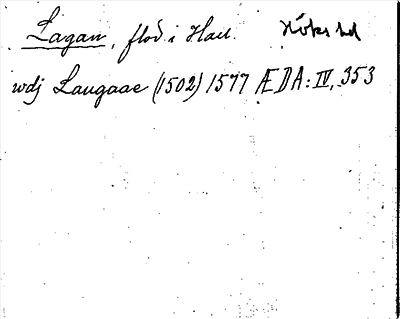 Lagan, flod i Hall. Höks hd
wdj Laugaae (1502) 1577 ÆDA: IV, 353